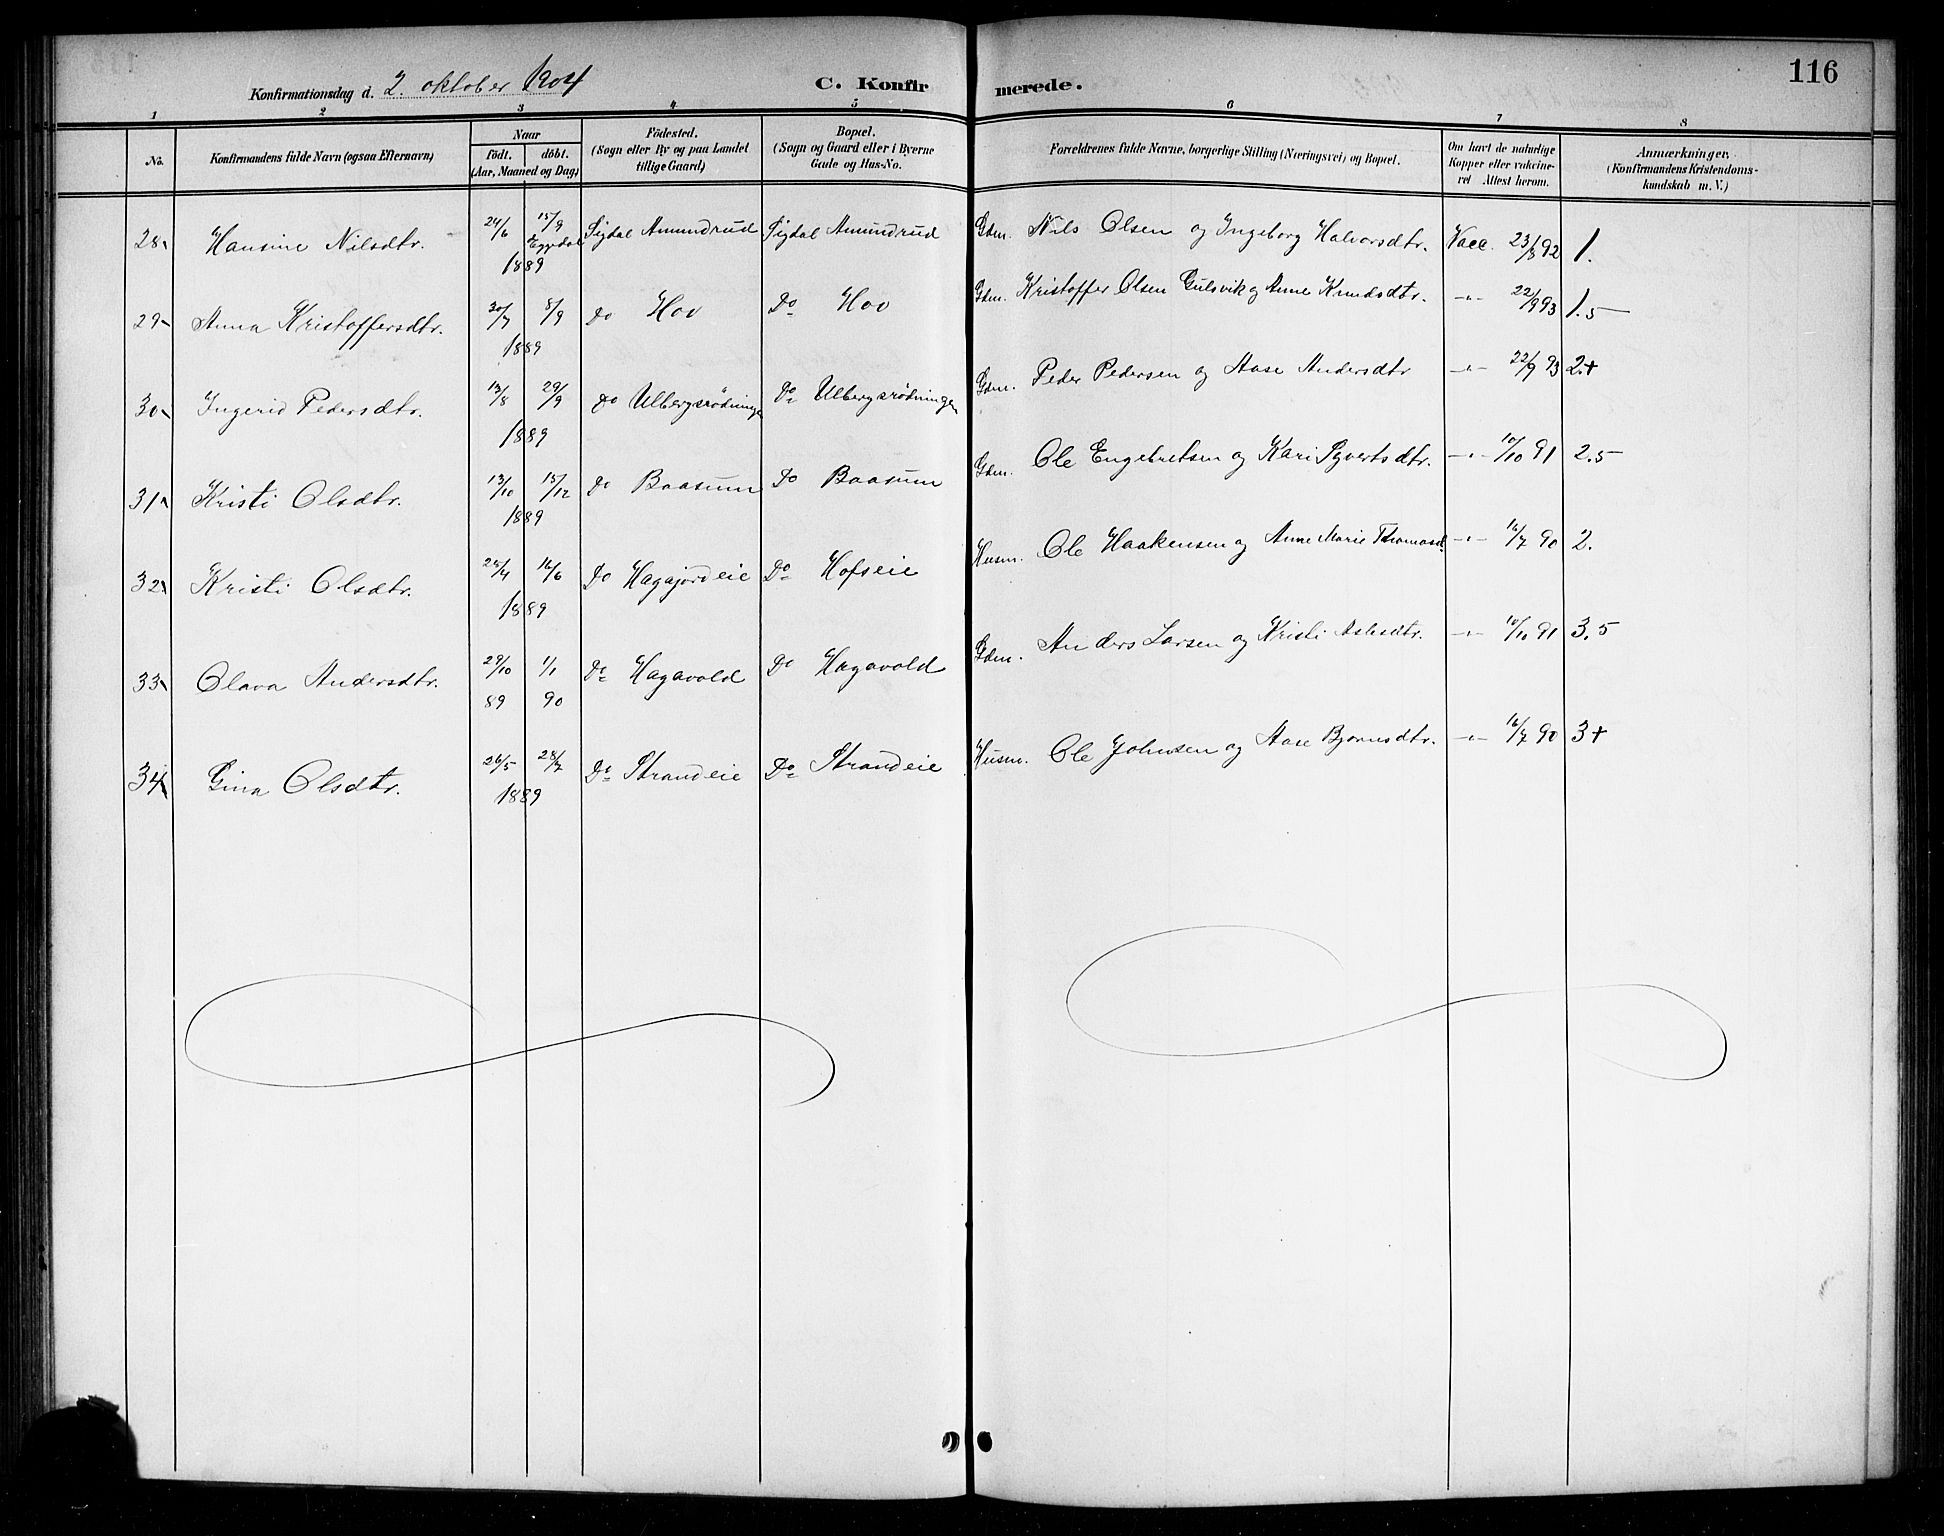 116
Konfirmationsdag d. 2. oktober 1904 C. Konfirmerede.
1 2 3 4 5 6 7 8
No. Konfirmandens fulde Navn (ogsaa Efternavn) Naar födt. döbt. (Aar, Maaned og Dag) Födested. (Sogn eller By og paa Landet tillige Gaard) Bopæl. (Sogn og Gaard eller i Byerne Gade og Hus-No. Forældrenes fulde Navne, borgerlige Stilling (Næringsvei) og Bopæl. Om havt de naturlige Kopper eller vakcineret Attest herom. Anmærkninger, (Konfirmandens Kristendomskundskab m. V.)
28. Hansine Nilsdtr. 24/6 15/9 Eggedal 1889 Sigdal Amundrud Sigdal Amundrud Gdm. Nils Olsen og Ingeborg Halvorsdtr. Vacc. 23/8 92 1.
29 Anna Kristoffersdtr. 30/7 8/9 1889 do Hov Do Hov Gdm. Kristoffer Olsen Gulsvik og Anne Knudsdtr. -"- 22/9 93 1.5
30 Ingerid Pedersdtr. 13/8 29/9 1889 do Ulbergsrødningen Do Ulbergsrødningen Gdm. Peder Pedersen og Aase Andersdtr -"- 22/9 93 2+
31 Kristi Olsdtr. 13/10 15/12 1889 do Baasum Do Baasum Gdm. Ole Engebretsen og Kari Syvertsdtr. -"- 10/10 91 2.5
32 Kristi Olsdtr. 25/4 16/6 1889 Do Hagajordeie Do Hofseie Husm. Ole Haakensen og Anne Marie Thomasd. -"- 16/7 90 2.
33 Olava Andersdtr. 29/10 89 1/1 90 Do Hagavold Do Hagavold Gdm. Anders Larsen og Kristi Aslesdtr. -"- 10/10 91 3.5
34 Gina Olsdtr. 26/5 28/7 1889 Do Strandeie Do Strandeie Husm. Ole Johnsen og Aase Bjørnsdtr. -"- 16/7 90 3+